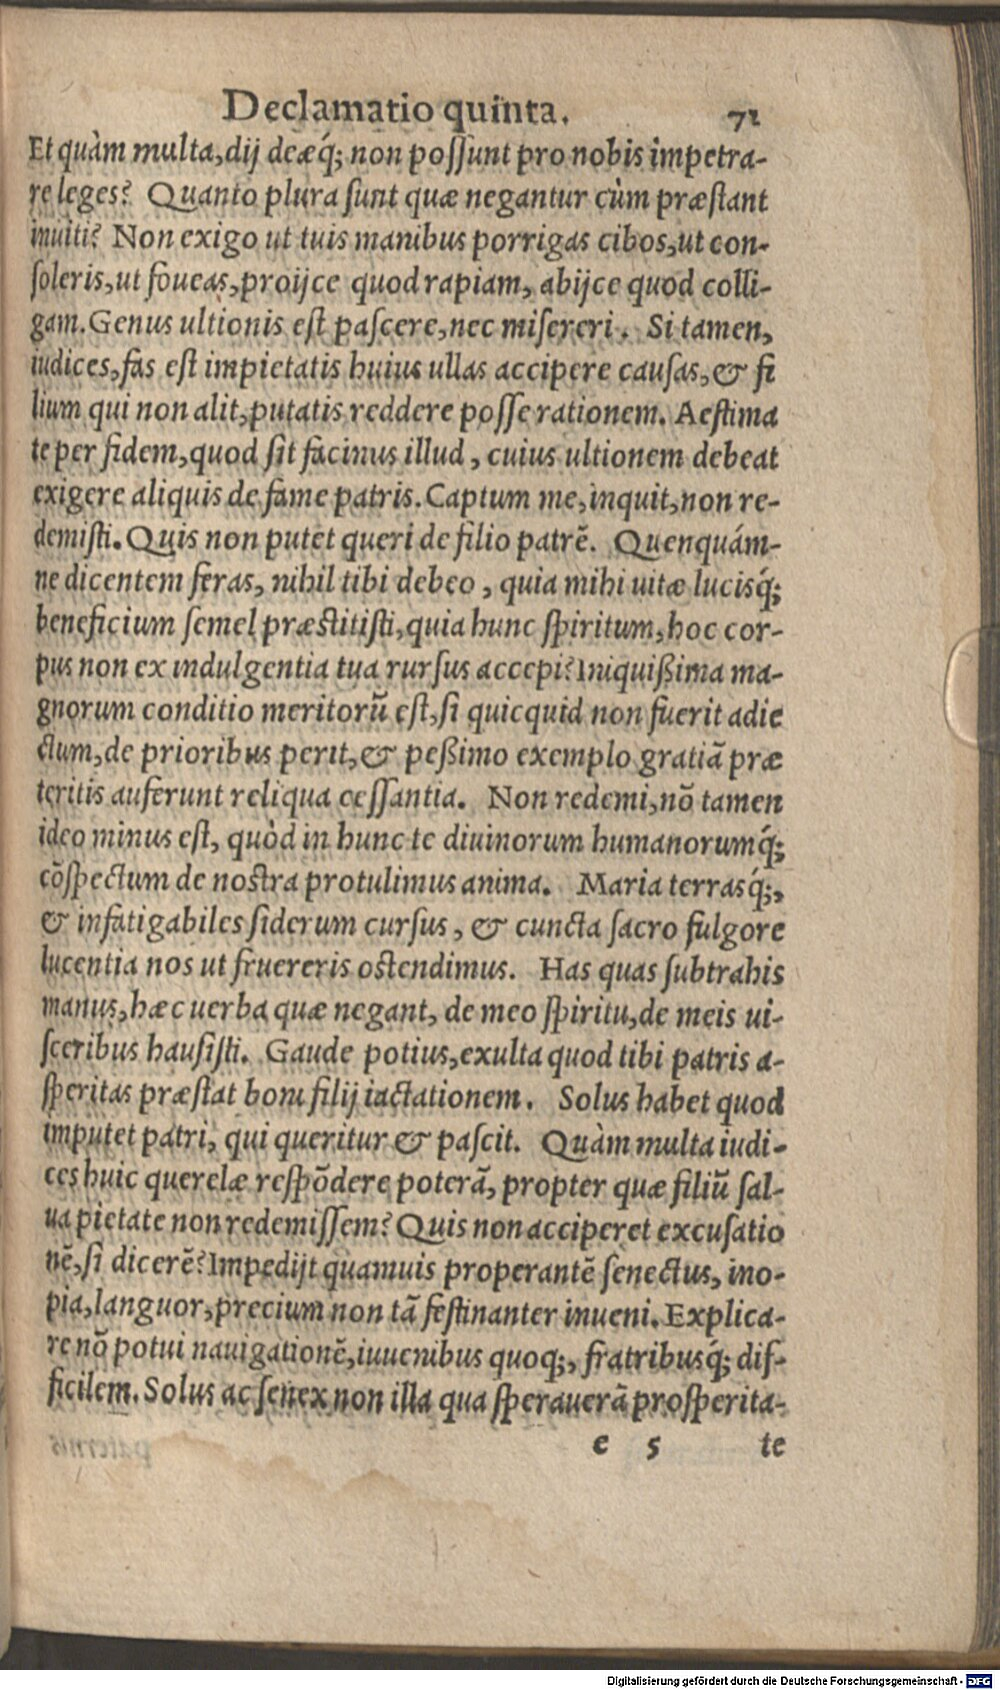 Declamatio quinta. 71
Et quàm multa, dij deæq́; non poſſunt pro nobis impetra-
re leges? Quanto plura ſunt quæ negantur cùm præſtant
inuiti? Non exigo ut tuis manibus porrigas cibos, ut con-
ſoleris, ut foueas, proijce quod rapiam, abijce quod colli-
gam. Genus ultionis eſt paſcere, nec miſereri. Si tamen,
iudices, fas eſt impietatis huius ullas accipere cauſas, & fi
lium qui non alit, putatis reddere poſſe rationem. Aeſtima
te per fidem, quod ſit facinus illud, cuius ultionem debeat
exigere aliquis de fame patris. Captum me, inquit, non re-
demiſti. Quis non putet queri de filio patrē. Quenquám-
ne dicentem feras, nihil tibi debeo, quia mihi uitæ lucisq́;
beneficium ſemel præstitiſti, quia hunc ſpiritum, hoc cor-
pus non ex indulgentia tua rurſus accepi? Iniquißima ma-
gnorum conditio meritorū eſt, ſi quicquid non fuerit adie
ctum, de prioribus perit, & peßimo exemplo gratiā præ
teritis auferunt reliqua ceſſantia. Non redemi, nō tamen
ideo minus eſt, quòd in hunc te diuinorum humanorumq́;
cōſpectum de nostra protulimus anima. Maria terrasq́;,
& infatigabiles ſiderum curſus, & cuncta ſacro fulgore
lucentia nos ut fruereris ostendimus. Has quas ſubtrahis
manus, hæc uerba quæ negant, de meo ſpiritu, de meis ui-
ſceribus hauſiſti. Gaude potius, exulta quod tibi patris a-
ſperitas præſtat boni filij iactationem. Solus habet quod
imputet patri, qui queritur & paſcit. Quàm multa iudi-
ces huic querelæ reſpōdere poterā, propter quæ filiū ſal-
ua pietate non redemiſſem? Quis non acciperet excuſatio
nē, ſi dicerē? Impedijt quamuis properantē ſenectus, ino-
pia, languor, precium non tā feſtinanter inueni. Explica-
re nō potui nauigationē, iuuenibus quoq;, fratribusq́; dif-
ficilem. Solus ac ſenex non illa qua ſperauerā proſperita-
e 5 te
Digitalisierung gefördert durch die Deutsche Forschungsgemeinschaft - DFG